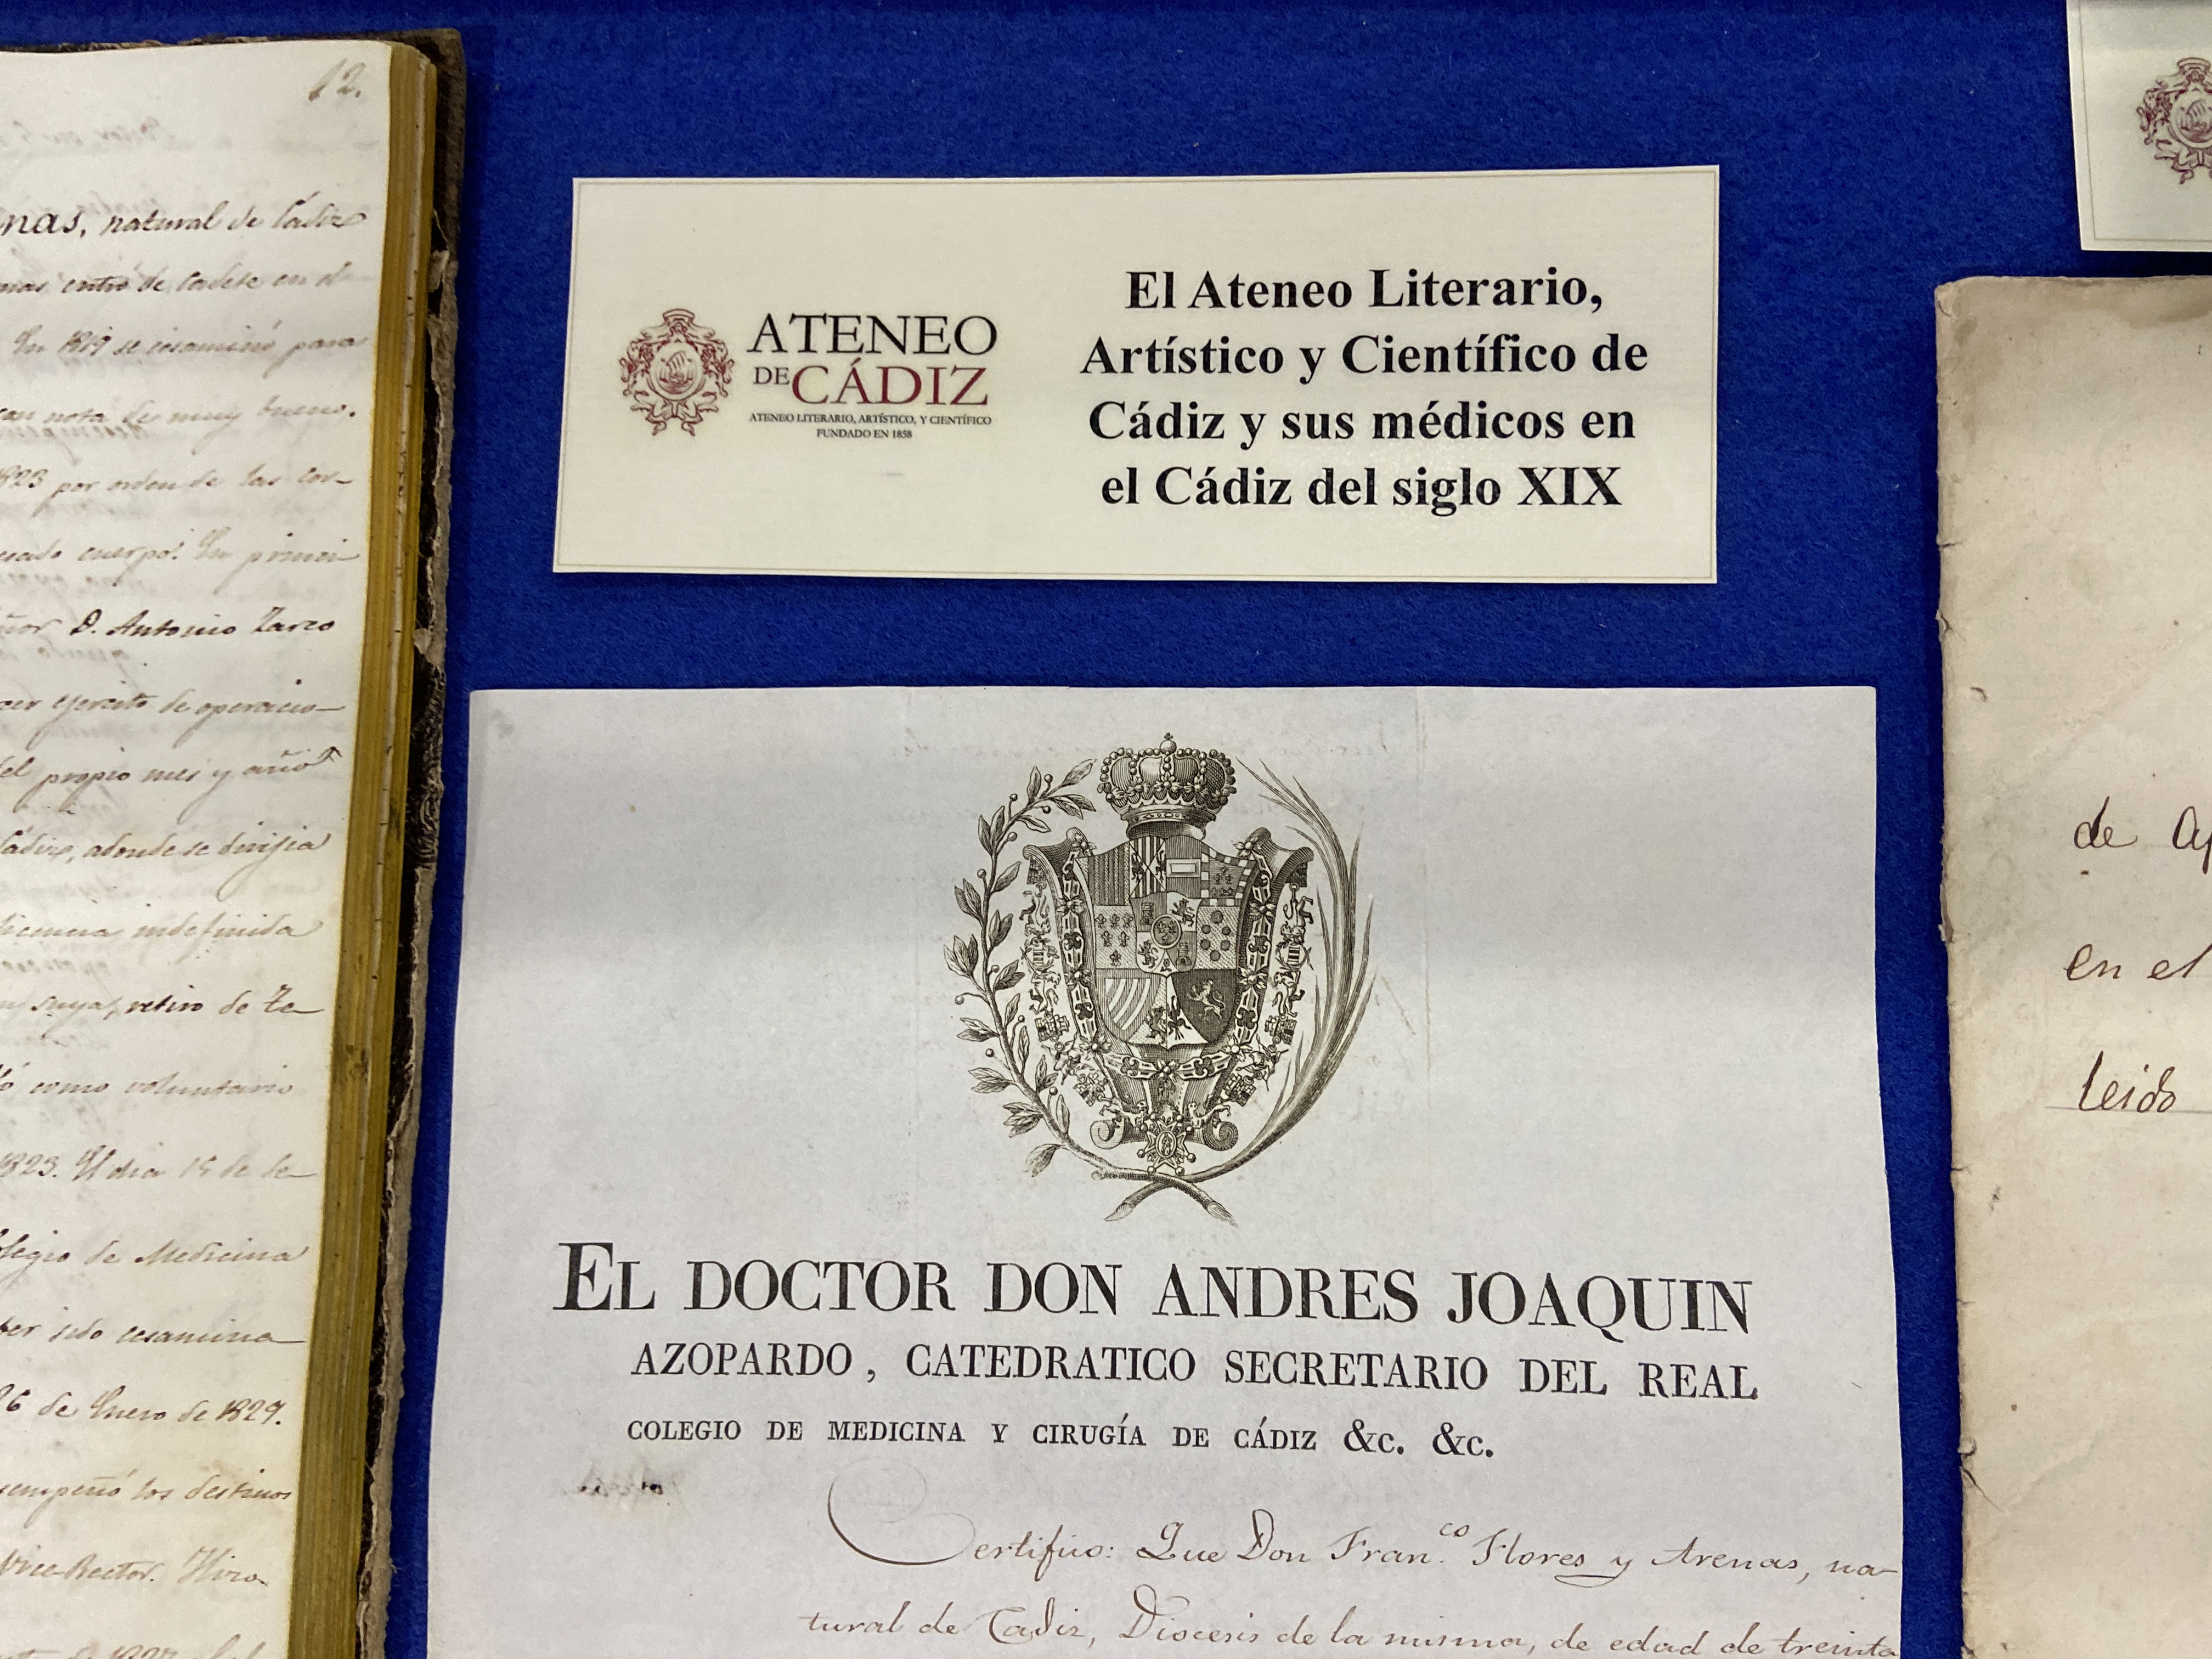 12.
nas, natural de Cadiz
entró de Cadete en el
En 1819 se ecsaminó para
nota de muy bueno.
1823 por orden de las Cor-
cuerpo. En primer
D. Antonio Zarco
ejercito de operacio-
el propio mes y año
Cádiz, adonde se dirijia
licencia indefinida
suya, retiro de Te-
como voluntario
1823. El dia 15 de Se-
de Medicina
sido ecsamina-
26 de Enero de 1829.
los destinos
Vice-Rector.
ATENEO
DE CÁDIZ
ATENEO LITERARIO, ARTÍSTICO, Y CIENTÍFICO
FUNDADO EN 1858
El Ateneo Literario,
Artístico y Científico de
Cádiz y sus médicos en
el Cádiz del siglo XIX
EL DOCTOR DON ANDRES JOAQUIN
AZOPARDO, CATEDRATICO SECRETARIO DEL REAL
COLEGIO DE MEDICINA Y CIRUGÍA DE CÁDIZ &c. &c.
Certifico: Que Don Fran.co Flores y Arenas, na-
tural de Cadiz, Diocesis de la misma, de edad de treinta
de
en el
leido